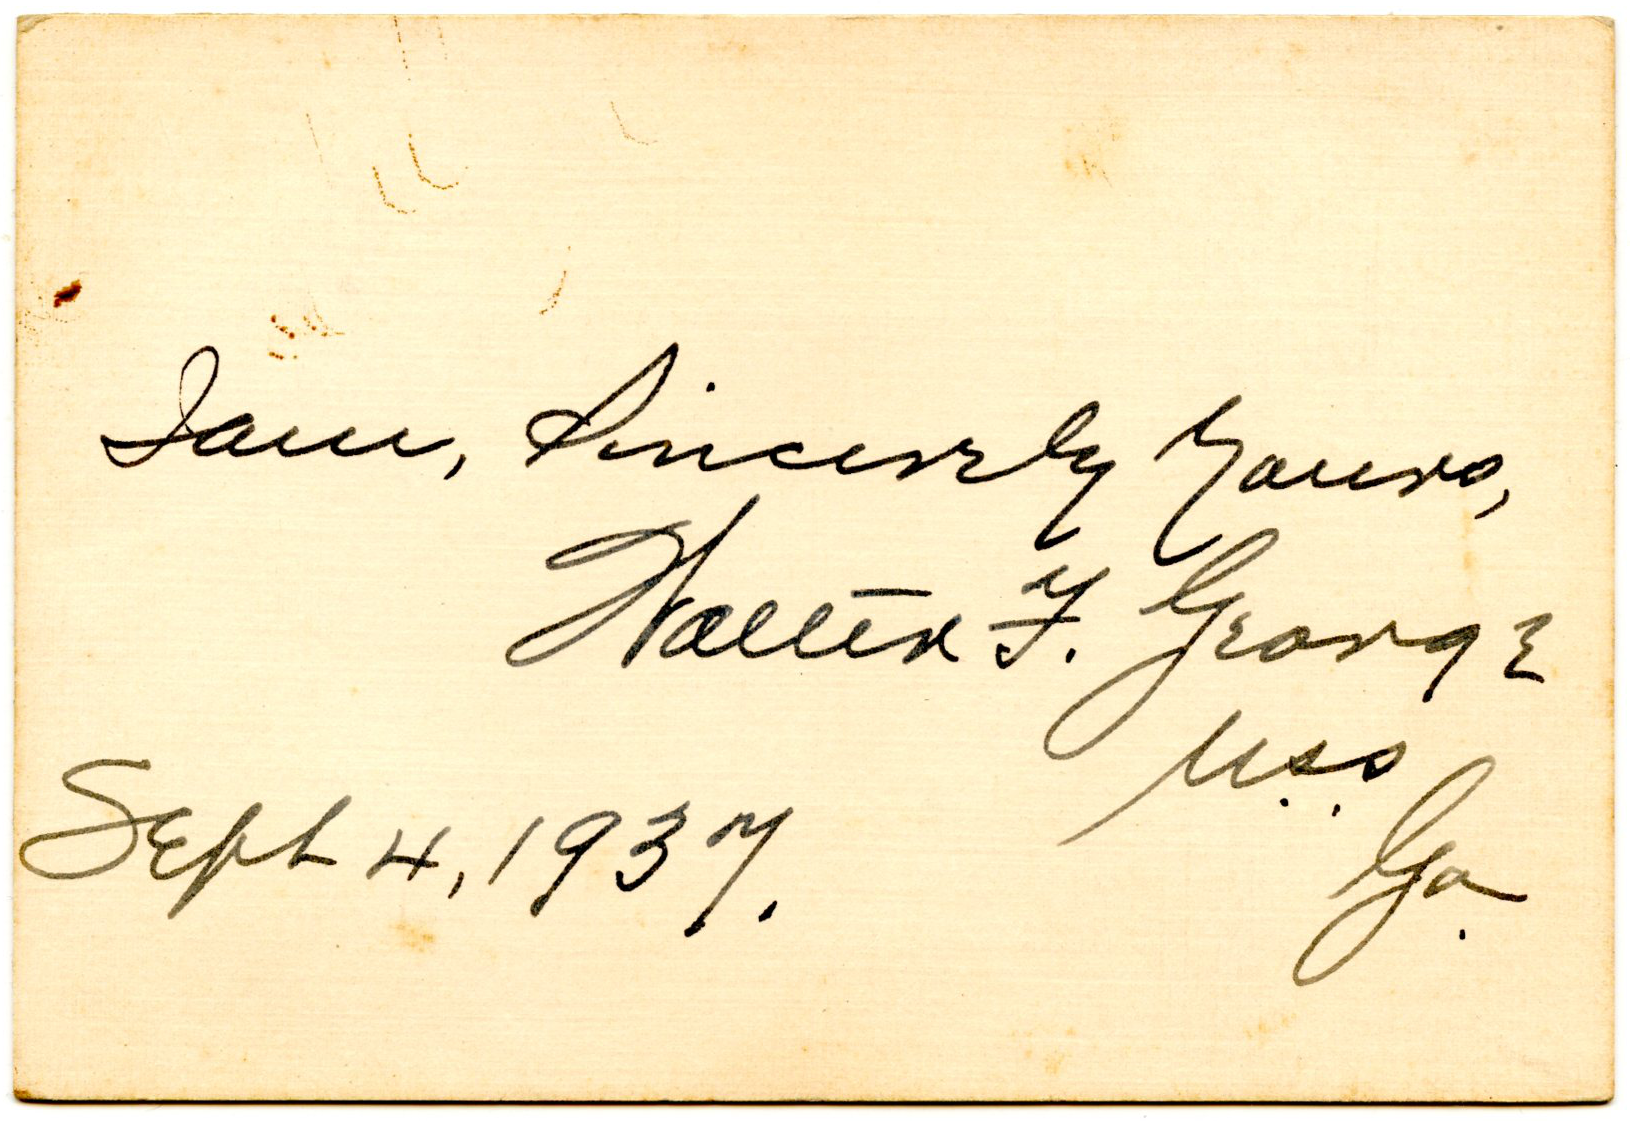 I am, Sincerely Yours,
Walter F. George
U.S.S.
Ga.
Sept 4, 1937.